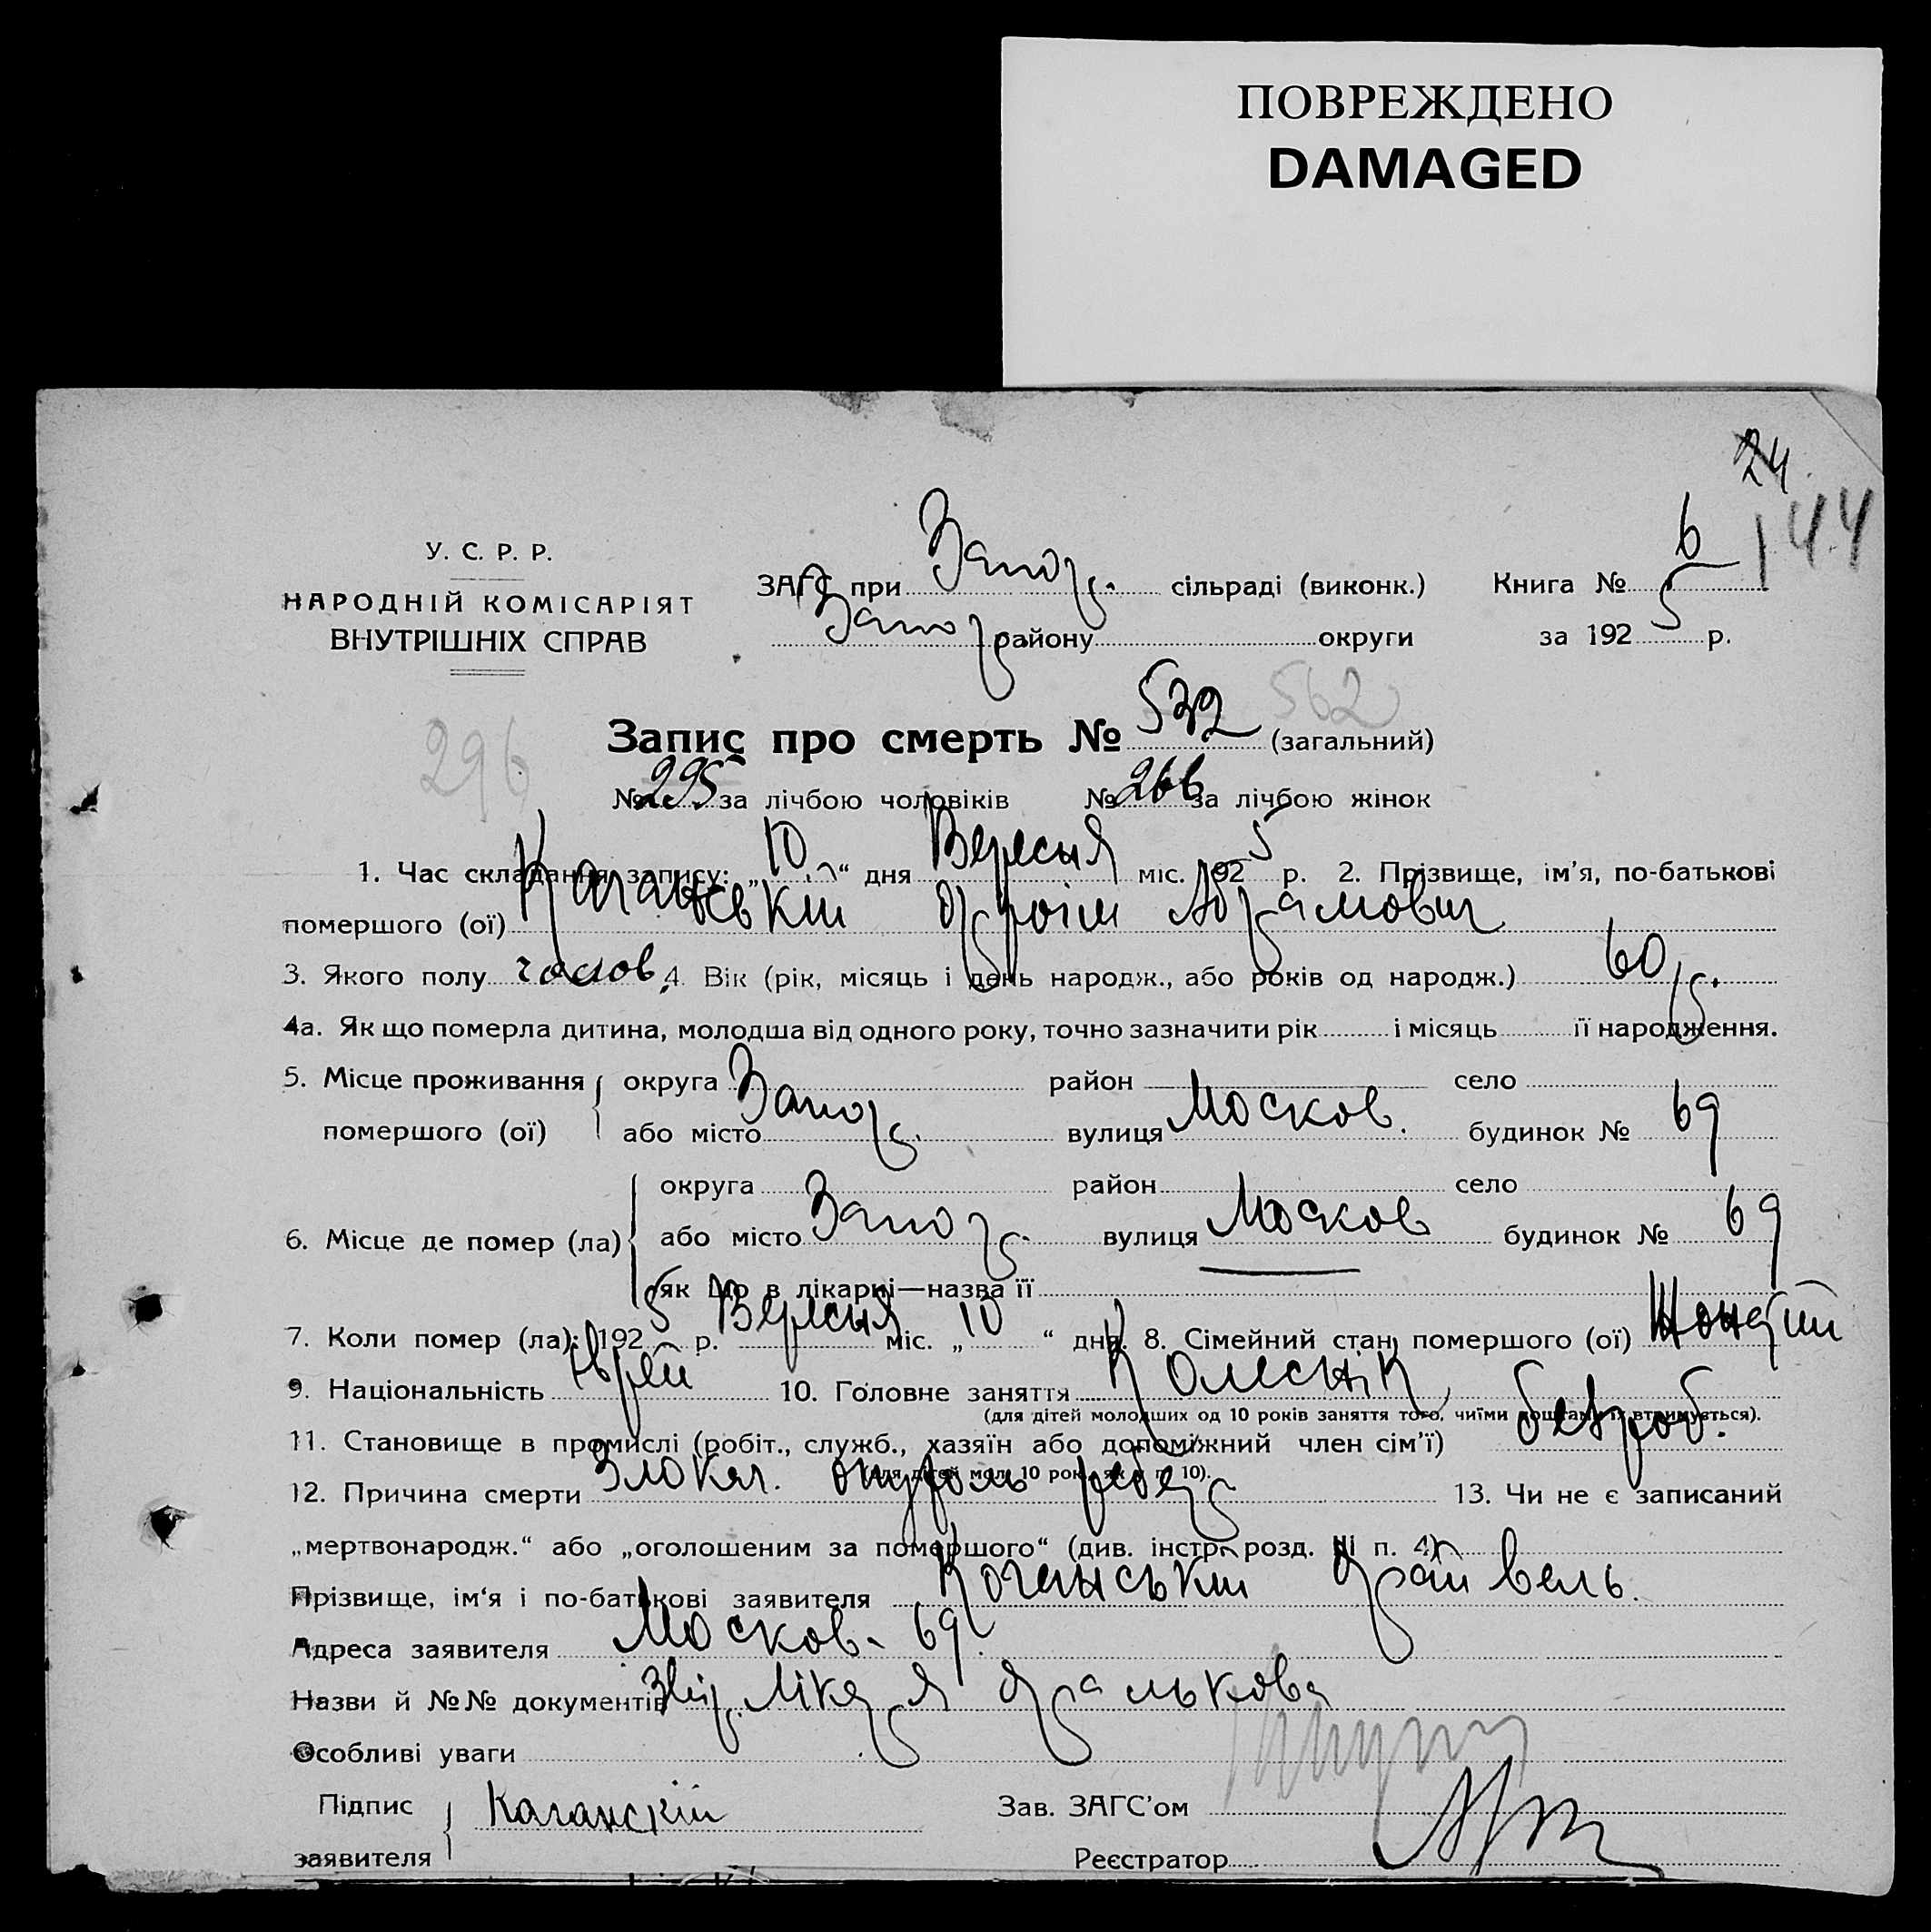 ПОВРЕЖДЕНО
DAMAGED
24
144
У. С. Р. Р.
НАРОДНІЙ КОМІСАРІЯТ
ВНУТРІШНІХ СПРАВ
ЗАГС при Запор. сільраді (виконк.) Книга № 6
Запор. району округи за 1925 р.
Запис про смерть № 532 562 (загальний)
296
№ 295 за лічбою чоловіків № 266 за лічбою жінок
1. Час складання запису: „10“ дня Вересня міс. 1925 р. 2. Прізвище, ім'я, по-батькові
помершого (ої) Каганський Фроїм Абрамович
3. Якого полу чолов. 4. Вік (рік, місяць і день народж., або років од народж.) 60 р.
4а. Як що померла дитина, молодша від одного року, точно зазначити рік і місяць її народження.
5. Місце проживання округа район село
помершого (ої) або місто Запор. вулиця Москов. будинок № 69
округа район село
6. Місце де помер (ла) або місто Запор. вулиця Москов будинок № 69
як що в лікарні—назва її
7. Коли помер (ла): 1925 р. Вересня міс. „10“ дня. 8. Сімейний стан помершого (ої) Жонатий
9. Національність Еврей 10. Головне заняття Колеснік
(для дітей молодших од 10 років заняття того, чиїми коштами їх втримується).
11. Становище в промислі (робіт., служб., хазяїн або допоміжний член сім'ї) безроб.
(для дітей мол. 10 рок., як у п. 10).
12. Причина смерти Злокач. 13. Чи не є записаний
„мертвонародж.“ або „оголошеним за померщого“ (див. інстр. розд. III п. 4)
Прізвище, ім'я і по-батькові заявителя Коганський
Адреса заявителя Москов. 69.
Назви й №№ документів Лікаря
Особливі уваги
Підпис Каганскій Зав. ЗАГС'ом
заявителя Реєстратор